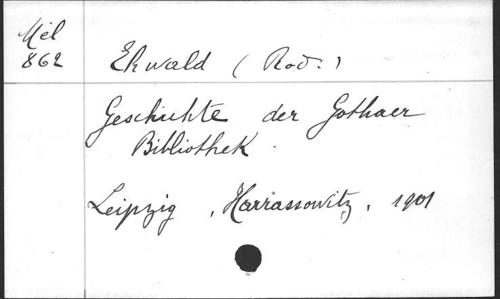 Mél
862
Ehwald (Rod.)
Geschichte der Gothaer
Bibliothek.
Leipzig, Harrassowitz, 1901